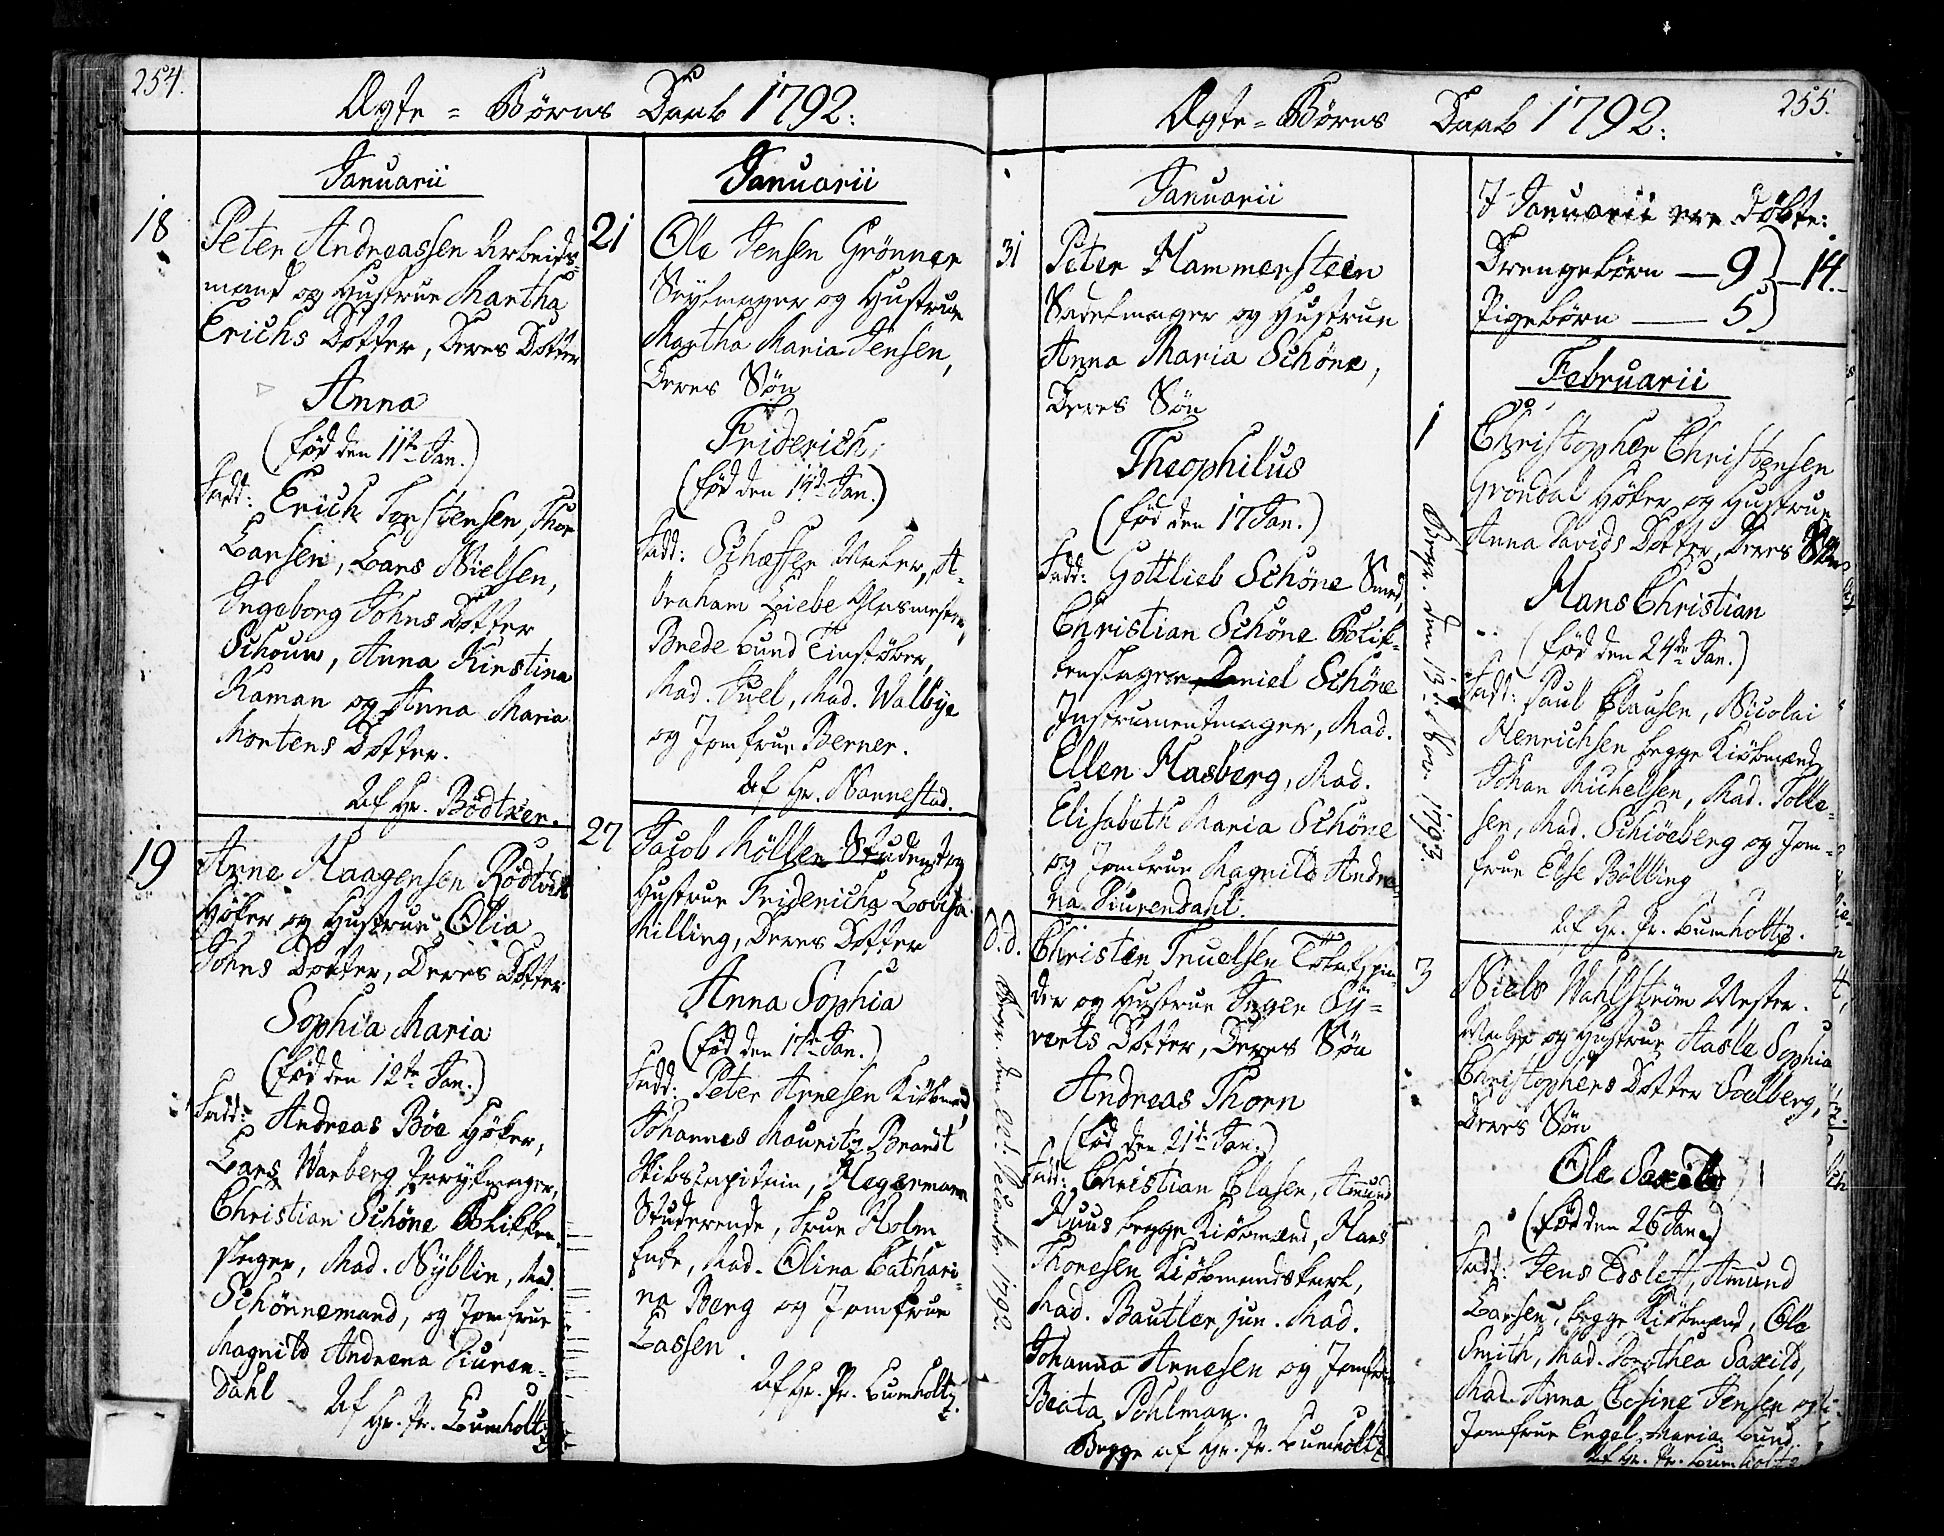 254.
Ægte = Børns Daab 1792:
Januarii
18
Peter Andreassen Arbeids-
mand og Hustrue Martha
Erichs Dotter, Deres Dotter
Anna
(fød den 11te Jan.)
Fadd: Erich Torstensen, Thor
Larsen, Lars Nielsen,
Ingeborg Johns Dotter
Schouw, Anna Kirstina
Kaman og Anna Maria
Mortens Dotter.
Af Hr. Bødtker.
19
Arne Haagensen Rødtvit
Høker og Hustrue Olia
Johns Dotter, Deres Dotter
Sophia Maria
(fød den 12te Jan.)
Fadd: Andreas Bøe Høker,
Lars Warberg Perykmager,
Christian Schöne Blikken-
slager, Mad. Nyblin, Mad.
Schönnemand, og Jomfrue
Magnild Andrena Biuren-
dahl
Af
Hr. Pr. Lumholtz
Januarii
21
Ole Jensen Grönner
Seylmager og Hustrue
Martha Maria Jensen,
Deres Søn
Friderich,
(fød den 14de Jan.)
Fadd: Schæffer Maler, A-
braham Liebe Glasmester,
Brede Lund Tinstøber,
Mad. Juel, Mad. Walbye
og Jomfrue Berner.
Af Hr. Nannestad.
27
Jacob Möller Student og
Hustrue Friderica Lovisa
Milling, Deres Dotter
Anna Sophia
(fød den 17de Jan.)
Fadd: Peter Arnesen Kiøbmand,
Johannes Mauritz Brandt
Skibscapitain, Hegermann
Studerende, Frue Holm
Enke, Mad. Olina Cathari-
na Berg og Jomfrue
Lassen.
Af Hr. Pr. Lumholtz.
255.
Ægte = Børns Daab 1792:
Januarii
31
Peter Hammersteen
Sadelmager og Hustrue
Anna Maria Schöne,
Deres Søn
Theophilus
(fød den 17 Jan.)
Fadd: Gottlieb Schöne Smed,
Christian Schöne Blik-
kenslager, Daniel Schöne
Instrumentmager, Mad.
Ellen Hasberg, Mad.
Elisabeth Maria Schöne
og Jomfrue Magnild Andre-
na Biurendahl.
d.d.
Christen Truelsen Tobakspin-
der og Hustrue Inger Sy-
verts Dotter, Deres Søn
Andreas Thorn
(fød den 21de Jan.)
Fadd: Christian Clasen, Amund
Ruus begge Kiøbmænd, Hans
Thoresen Kiøbmandskarl,
Mad. Bautler jun. Mad.
Johanna Arnesen og Jomfrue
Beata Pohlman.
Begge af Hr. Pr. Lumholtz
Begr. den December 1792.
I Januarii ere døbte:
Drengebørn — 9
Pigebørn — 5
14.
Februarii
1
Christopher Christensen
Gröndal Høker og Hustrue
Anna Davids Dotter, Deres Søn
Hans Christian
(fød den 24de Jan.)
Fadd: Paul Clausen, Nicolai
Henrichsen begge Kiøbmænd,
Johan Michelsen, Mad. Tolle-
sen, Mad. Schiøeberg og Jom-
frue Else Bölling
Af Hr. Pr. Lumholtz.
Begr. den 13de Nov. 1793.
3
Niels Wahlström Mester-
Maler og Hustrue Aasle Sophia
Christophers Dotter Soelberg,
Deres Søn
Ole Saxild
(fød den 26 Jan.)
Fadd: Jens Edslef, Amund
Larsen, begge Kiøbmænd, Ole
Smith, Mad. Dorothea Saxild,
Mad. Anna Cosine Jensen og
Jomfrue Engel Maria Lund.
Af Hr. Pr. Lumholtz